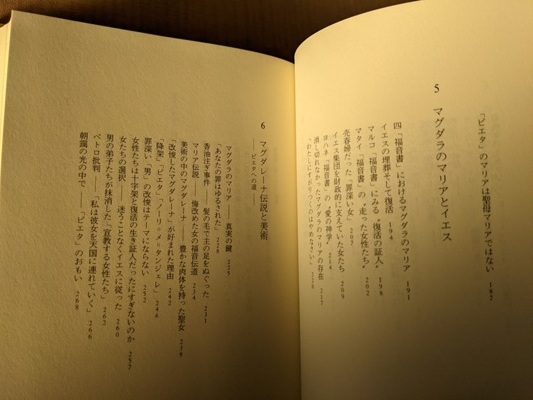 「ピエタ」のマリアは聖母マリアではない 187
5 マグダラのマリアとイエス
四「福音書」におけるマグダラのマリア 191
イエスの埋葬そして復活 194
マルコ「福音書」にみる〝復活の証人〟 198
マタイ「福音書」の〝走った女性たち〟 202
売春婦だった〝罪深い〟 207
イエス集団を財政的に支えていた女たち 209
ヨハネ「福音書」の〝愛の神学〟 214
消し切れなかったマグダラのマリアの存在
6 マグダレーナ伝説と美術
——ピエタへの道——
マグダラのマリア——真実の鍵 225
「あなたの罪はゆるされた」 229
香油注ぎ事件——髪の毛で主の足をぬぐった 233
マリア伝説——悔改めた女の福音伝道 234
美術の中のマグダレーナ——豊かな肉体を持った聖女 238
「改悛したマグダレーナ」が好まれた理由 242
「降架」「ピエタ」「ノーリ・メ・タンジェレ」 246
罪深い「男」の改悛はテーマにならない 252
女性たちは十字架と復活の生き証人だったにすぎないのか 257
女たちの選択——迷うことなくイエスに従った 260
男の弟子たちが抹消した「宣教する女性たち」 262
ペトロ批判——「私は彼女を天国に連れていく」 266
朝靄の光の中で——「ピエタ」のおもい 268